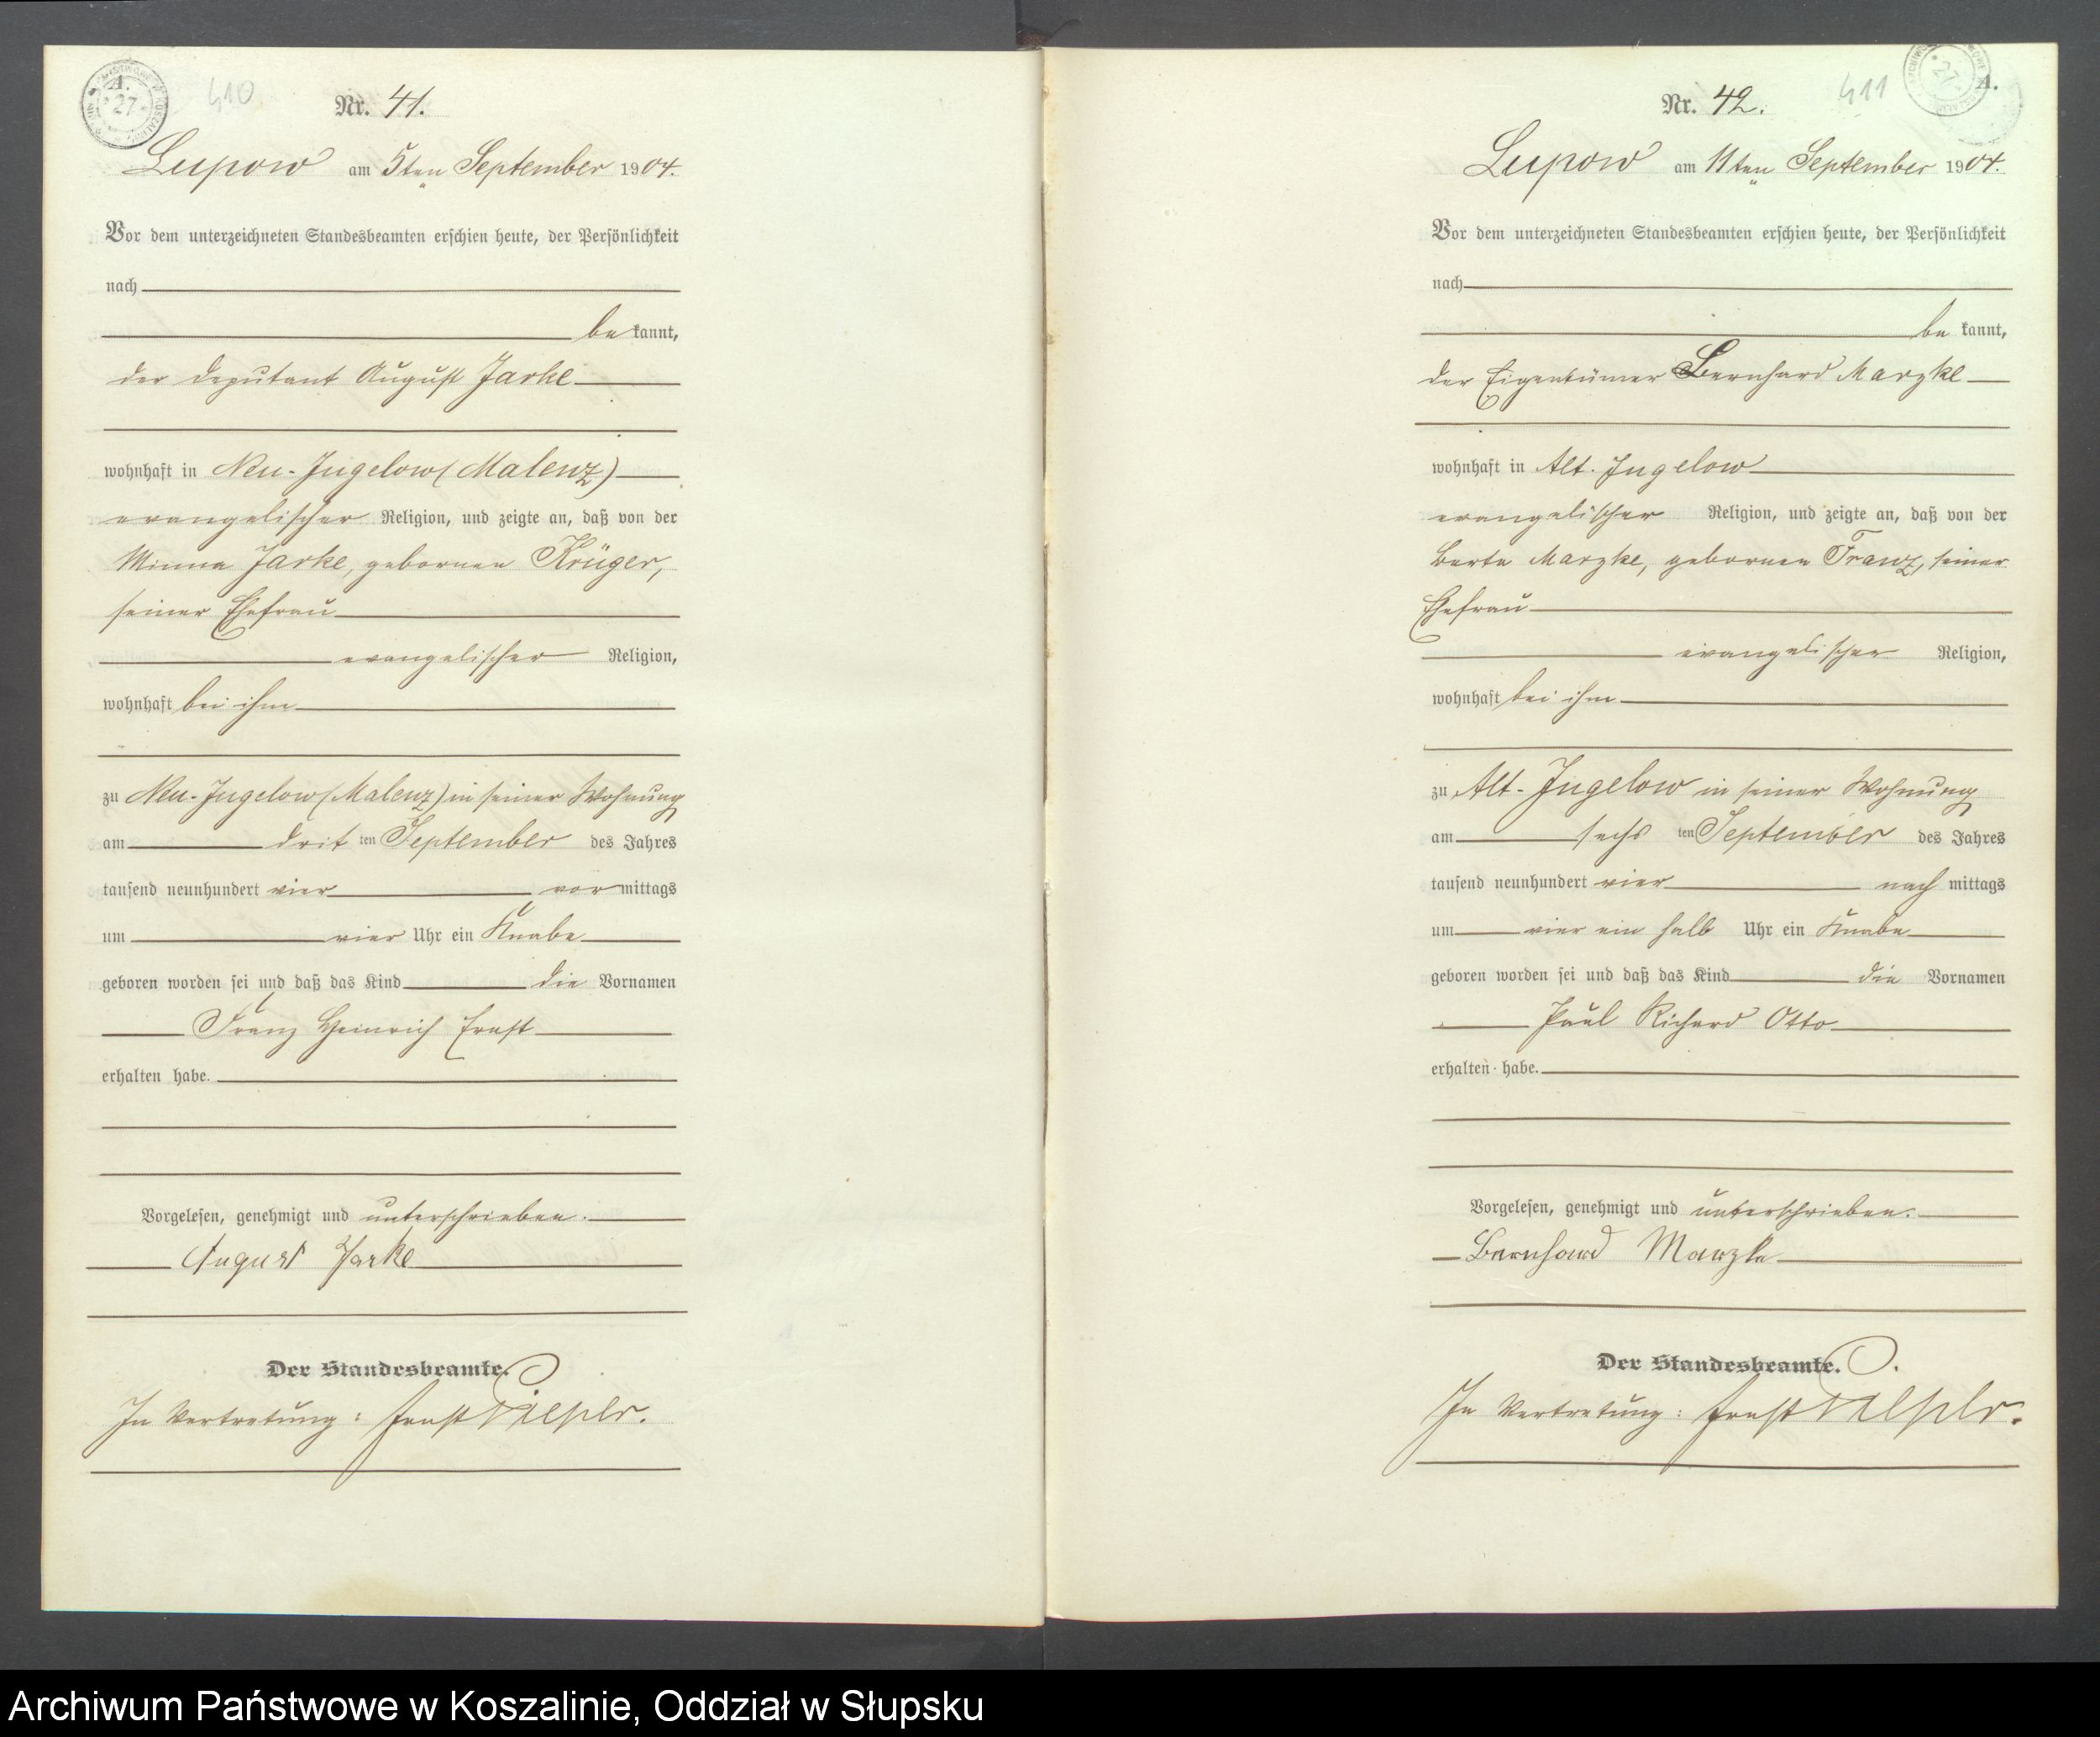 A.
410
Nr. 41.
Lupow am 5ten September 1904.
Vor dem unterzeichneten Standesbeamten erschien heute, der Persönlichkeit
nach
be kannt,
der Deputant August Jarke
wohnhaft in Neu-Jugelow (Malenz)
evangelischer Religion, und zeigte an, daß von der
Minna Jarke, gebornen Krüger,
seiner Ehefrau
evangelischer Religion,
wohnhaft bei ihm
zu Neu-Jugelow (Malenz) in seiner Wohnung
am drit ten September des Jahres
tausend neunhundert vier vor mittags
um vier Uhr ein Knabe
geboren worden sei und daß das Kind die Vornamen
Franz Heinrich Ernst
erhalten habe.
Vorgelesen, genehmigt und unterschrieben.
August Jarke
Der Standesbeamte.
In Vertretung: Ernst
A.
411
Nr. 42.
Lupow am 11ten September 1904.
Vor dem unterzeichneten Standesbeamten erschien heute, der Persönlichkeit
nach
be kannt,
der Eigentümer Bernhard Marzke
wohnhaft in Alt-Jugelow
evangelischer Religion, und zeigte an, daß von der
Berta Marzke, gebornen Franz, seiner
Ehefrau
evangelischer Religion,
wohnhaft bei ihm
zu Alt-Jugelow in seiner Wohnung
am sechs ten September des Jahres
tausend neunhundert vier nach mittags
um vier ein halb Uhr ein Knabe
geboren worden sei und daß das Kind die Vornamen
Paul Richard Otto
erhalten habe.
Vorgelesen, genehmigt und unterschrieben.
Bernhard Marzke
Der Standesbeamte.
In Vertretung: Ernst
Archiwum Państwowe w Koszalinie, Oddział w Słupsku